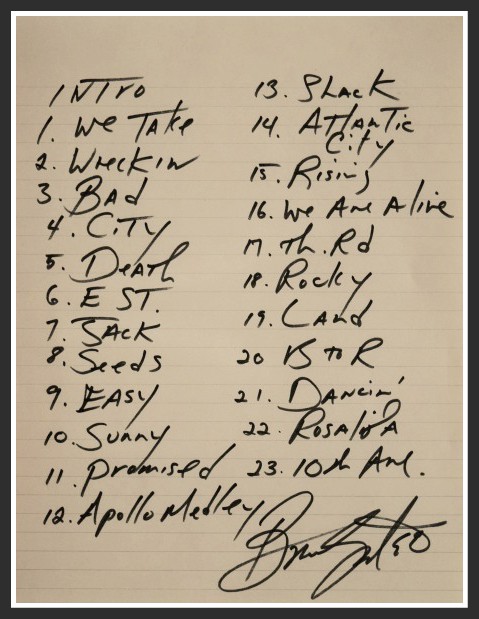 INTro
1. We Take
2. Wreckin
3. BAd
4. CiTy
5. DeATh
6. E ST.
7. JACK
8. Seeds
9. EASy
10. Sunny
11. promised
12. Apollo Medley
13. SHacK
14. ATLANTic
City
15. Rising
16. We Are Alive
17. Th. Rd
18. Rocky
19. LAnd
20 B To R
21. DANcin'
22. RosAliTA
23. 10th Ave.